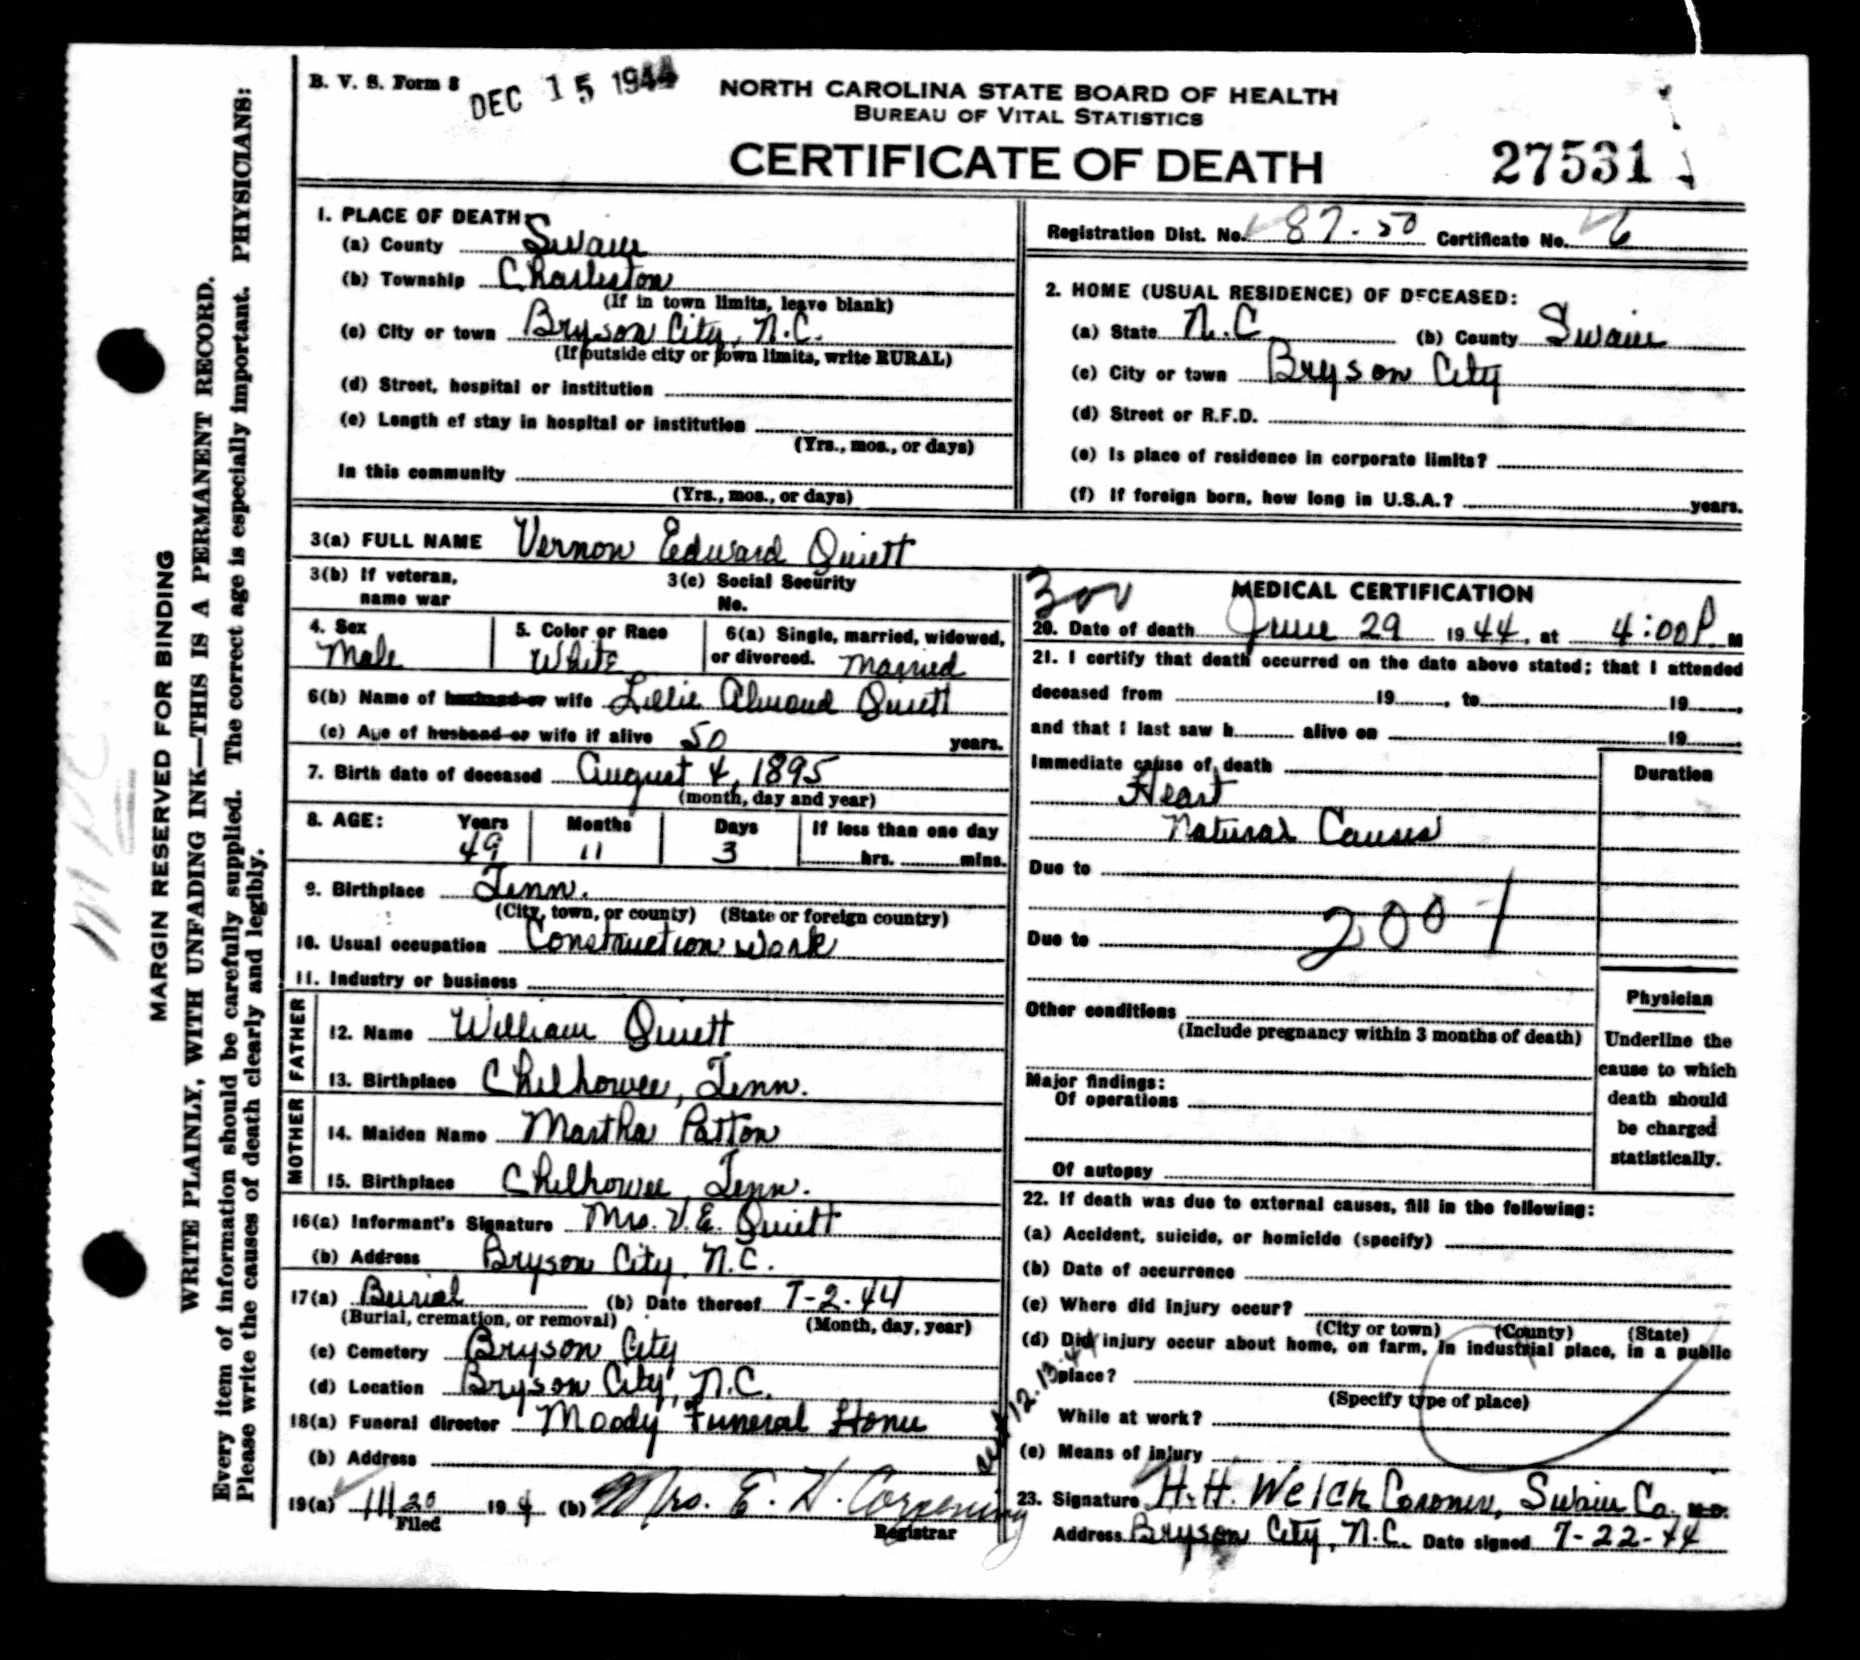 B. V. S. Form 8
DEC 15 1944
NORTH CAROLINA STATE BOARD OF HEALTH
BUREAU OF VITAL STATISTICS
CERTIFICATE OF DEATH
27531
MARGIN RESERVED FOR BINDING
WRITE PLAINLY, WITH UNFADING INK—THIS IS A PERMANENT RECORD.
Every item of information should be carefully supplied. The correct age is especially important. PHYSICIANS:
Please write the causes of death clearly and legibly.
1. PLACE OF DEATH:
(a) County Swain
(b) Township Charleston
(If in town limits, leave blank)
(c) City or town Bryson City, N.C.
(If outside city or town limits, write RURAL)
(d) Street, hospital or institution
(e) Length of stay in hospital or institution
(Yrs., mos., or days)
In this community
(Yrs., mos., or days)
Registration Dist. No. 87-50 Certificate No. 6
2. HOME (USUAL RESIDENCE) OF DECEASED:
(a) State N.C (b) County Swain
(c) City or town Bryson City
(d) Street or R.F.D.
(e) Is place of residence in corporate limits?
(f) If foreign born, how long in U.S.A.? years.
3(a) FULL NAME Vernon Edward Quiett
3(b) If veteran, name war
3(c) Social Security No.
4. Sex Male
5. Color or Race White
6(a) Single, married, widowed, or divorced. Married
6(b) Name of husband or wife Lillie Almond Quiett
(c) Age of husband or wife if alive 50 years.
7. Birth date of deceased August 4, 1895
(month, day and year)
8. AGE: Years Months Days If less than one day
49 11 3 hrs. mins.
9. Birthplace Tenn.
(City, town, or county) (State or foreign country)
10. Usual occupation Construction Work
11. Industry or business
FATHER
12. Name William Quiett
13. Birthplace Chilhowee, Tenn.
MOTHER
14. Maiden Name Martha Patton
15. Birthplace Chilhowee, Tenn.
16(a) Informant's Signature Mrs. V.E. Quiett
(b) Address Bryson City, N.C.
17(a) Burial (b) Date thereof 7-2-44
(Burial, cremation, or removal) (Month, day, year)
(c) Cemetery Bryson City
(d) Location Bryson City, N.C.
18(a) Funeral director Moody Funeral Home
(b) Address
19(a) 11/20 19 4 (b) Mrs. E. H. Corpening
Filed Registrar
MEDICAL CERTIFICATION
20. Date of death June 29 1944, at 4:00 P. M
21. I certify that death occurred on the date above stated; that I attended
deceased from 19 , to 19 ,
and that I last saw h alive on 19
Immediate cause of death
Duration
Heart
Natural Causes
Due to
200-1
Due to
Other conditions
(Include pregnancy within 3 months of death)
Major findings:
Of operations
Of autopsy
Physician
Underline the
cause to which
death should
be charged
statistically.
22. If death was due to external causes, fill in the following:
(a) Accident, suicide, or homicide (specify)
(b) Date of occurrence
(c) Where did injury occur?
(City or town) (County) (State)
(d) Did injury occur about home, on farm, in industrial place, in a public
place?
(Specify type of place)
While at work?
(e) Means of injury
23. Signature H.H. Welch Coroner, Swain Co. M.D.
Address Bryson City, N.C. Date signed 7-22-44